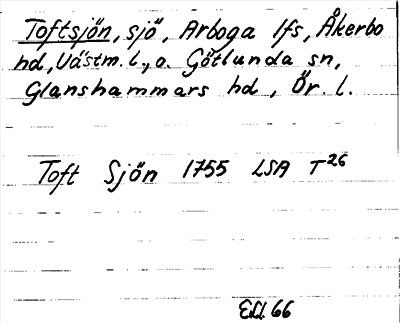 Toftsjön, sjö, Arboga lfs, Åkerbo
hd, Västm. l., o. Götlunda sn,
Glanshammars hd, Ör. l.
Toft Sjön 1755 LSA T26
E.Ll. 66